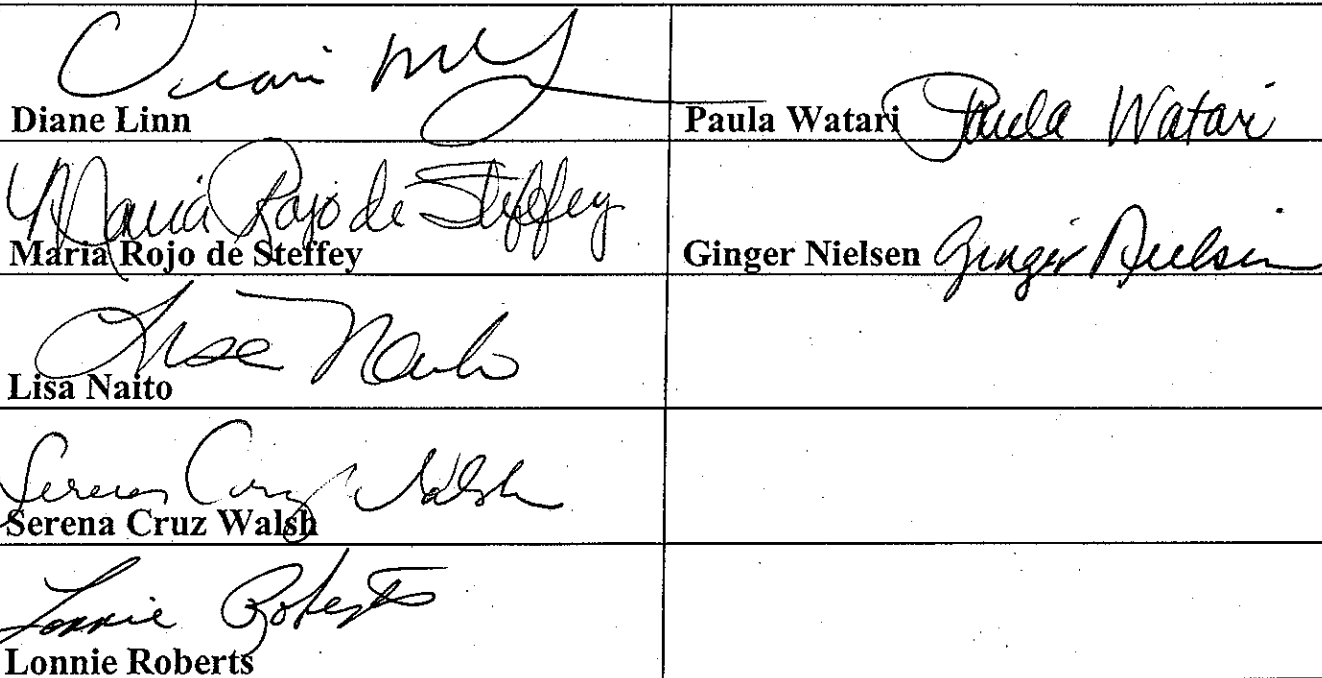 Diane Linn
Paula Watari Paula Watari
Maria Rojo de Steffey
Maria Rojo de Steffey
Ginger Nielsen Ginger Nielsen
Lisa Naito
Lisa Naito
Serena Cruz Walsh
Serena Cruz Walsh
Lonnie Roberts
Lonnie Roberts